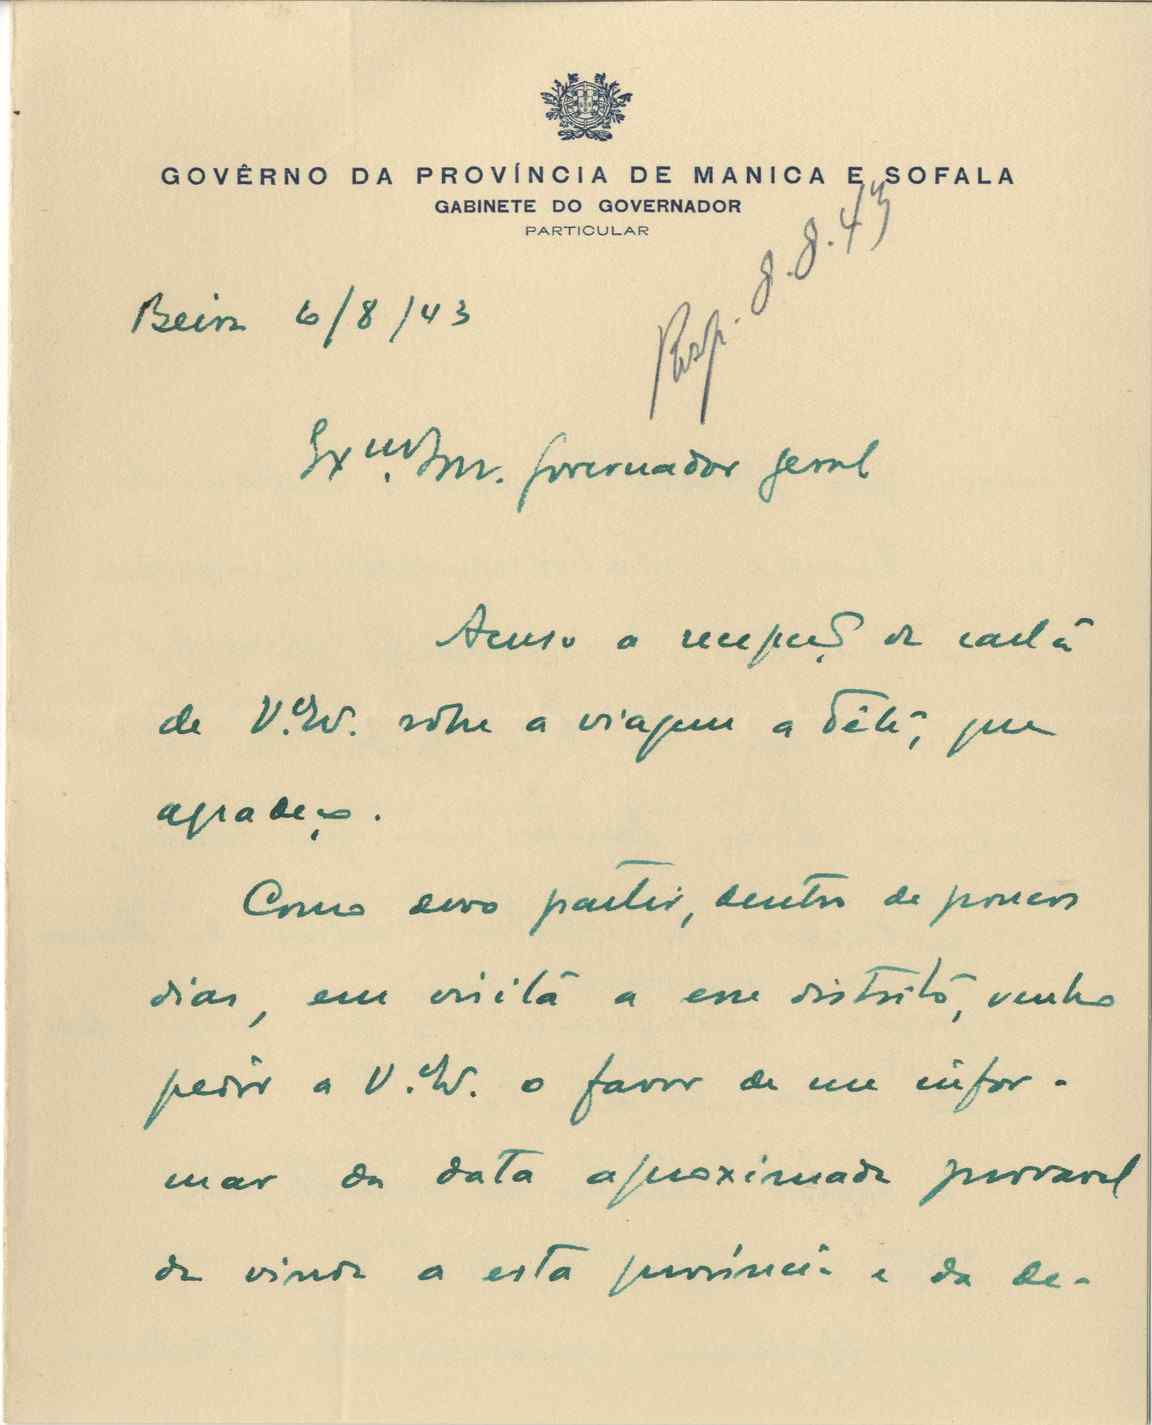 GOVÊRNO DA PROVÍNCIA DE MANICA E SOFALA
GABINETE DO GOVERNADOR
PARTICULAR
Resp. 8.8.43
Beira 6/8/43
Exmo. Snr. Governador geral
Acuso a recepção da carta
de V. Exª. sôbre a viagem a Tête, que
agradeço.
Como devo partir, dentro de poucos
dias, em visita a esse distrito, venho
pedir a V. Exª. o favor de me infor-
mar da data aproximada provavel
da vinda a esta província e da de-